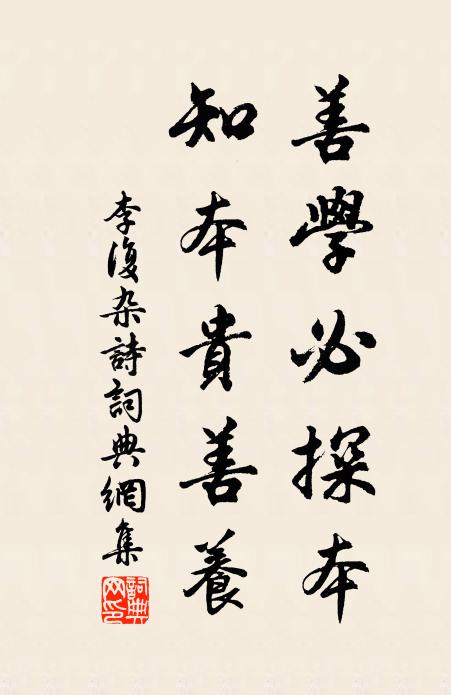 善學必探本
知本貴善養
李復杂詩詞典網集
詞典网印